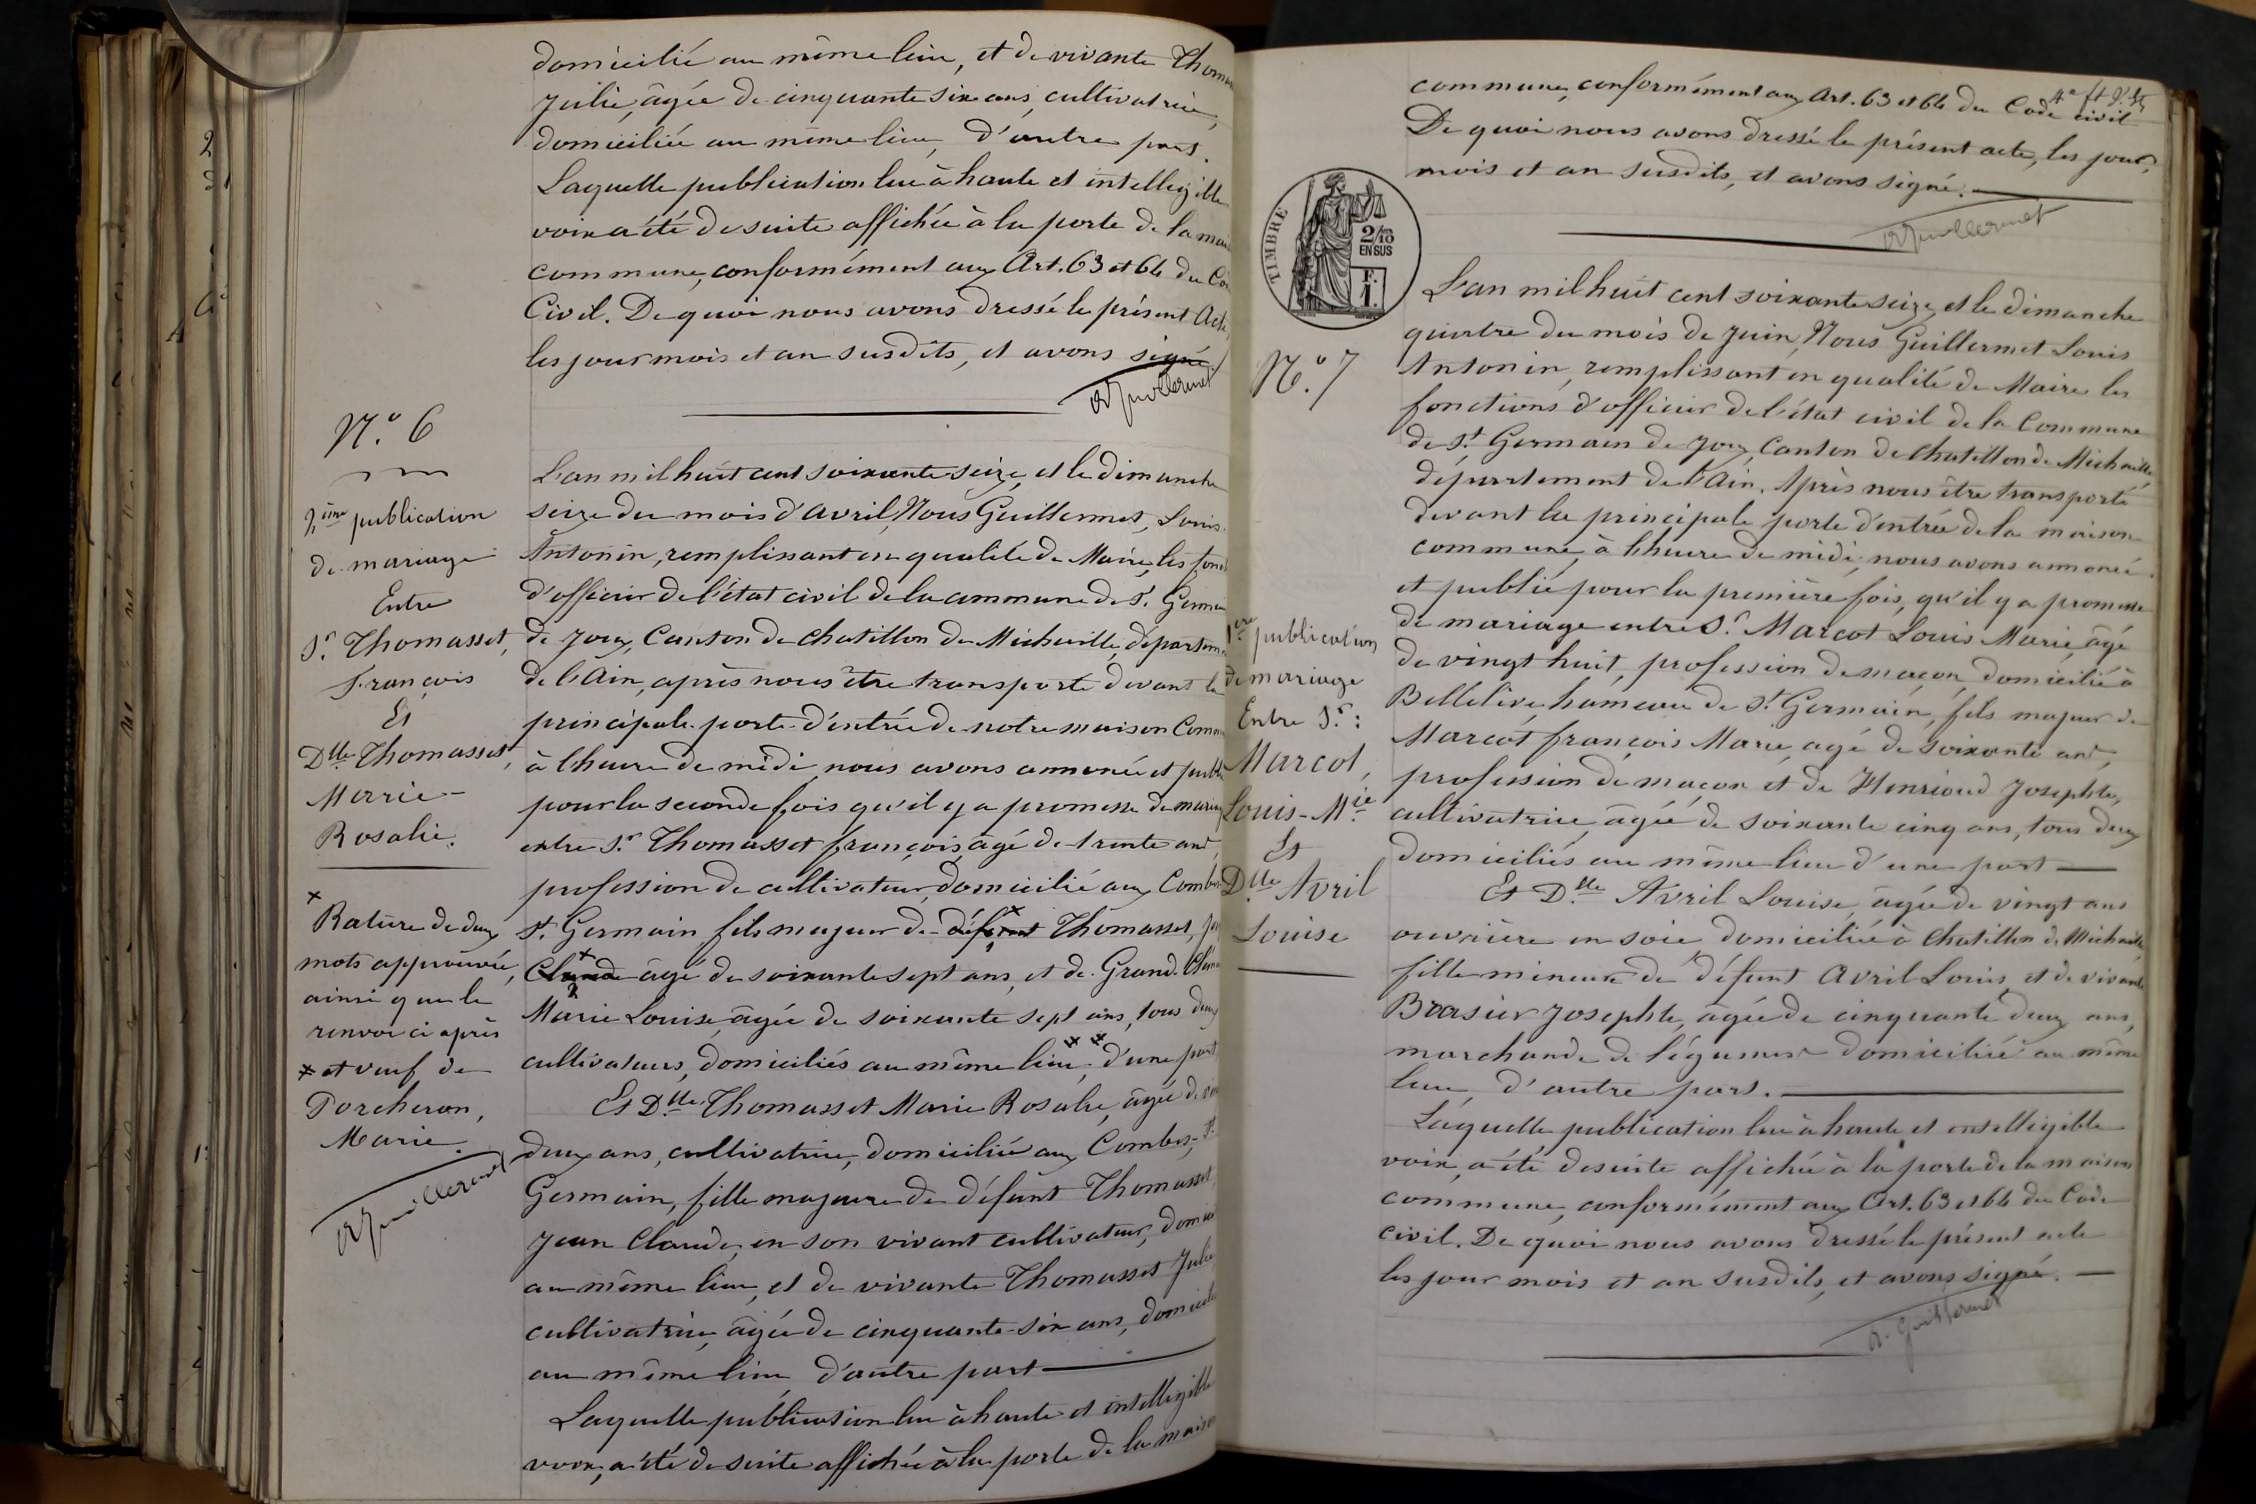 domicilié au même lieu, et de vivante Thom
Julie, âgée de cinquante six ans, cultivatrice,
domiciliée au même lieu, d'autre part.
Laquelle publication lue à haute et intelligible
voix a été de suite affichée à la porte de la mai
commune, conformément aux Art. 63 et 64 du Co
Civil. De quoi nous avons dressé le présent Acte,
les jour mois et an susdits, et avons signé
A Guillermet
N.º 6
2ème publication
de mariage
Entre
Sr. Thomasset,
François
Et
Dlle Thomasset,
Marie-
Rosalie.
x
Rature de deux
mots approuvée,
ainsi que le
renvoi ci après
x et veuf de
Porcheron,
Marie.
A Guillermet
L'an mil huit cent soixante seize, et le dimanche
seize du mois d'avril, Nous Guillermet, Louis
Antonin, remplissant en qualité de Maire, les fonc
d'officier de l'état civil de la commune de St. Germain
de Joux, Canton de Chatillon de Michaille, départem
de l'Ain, après nous être transporté devant la
principale porte d'entrée de notre maison Comm
à l'heure de midi, nous avons annoncé et publ
pour la seconde fois qu'il y a promesse de mariag
entre Sr. Thomasset françois, âgé de trente ans,
profession de cultivateur, domicilié aux Combes
St. Germain, fils majeur de défunt Thomasset,
Claude âgé de soixante sept ans, et de Grand-Clém
Marie Louise, âgée de soixante sept ans, tous deux
cultivateurs, domiciliés au même lieu, d'une part
Et Dlle Thomasset Marie Rosalie, âgée de vin
deux ans, cultivatrice, domiciliée aux Combes, St
Germain, fille majeure de défunt Thomasset
Jean Claude, en son vivant cultivateur, domici
au même lieu, et de vivante Thomasset Julie
cultivatrice, âgée de cinquante-six ans, domicil
au même lieu d'autre part
Laquelle publication lue à haute et intelligible
voix, a été de suite affichée à la porte de la maison
commune, conformément aux Art. 63 et 64 du Code civil
De quoi nous avons dressé le présent acte, les jour,
mois et an susdits, et avons signé.
A Guillermet
TIMBRE
2/10
EN SUS
F.
1.
N.º 7
1ère publication
de mariage
Entre Sr:
Marcot,
Louis-Mie
Et
Dlle Avril
Louise
L'an mil huit cent soixante seize, et le dimanche
quatre du mois de Juin, Nous Guillermet Louis
Antonin, remplissant en qualité de Maire les
fonctions d'officier de l'état civil de la Commune
de St Germain de Joux, Canton de Chatillon de Michaille,
département de l'Ain. Après nous être transporté
devant la principale porte d'entrée de la maison
commune, à l'heure de midi, nous avons annoncé
et publié pour la première fois, qu'il y a promesse
de mariage entre Sr. Marcot Louis Marie, âgé
de vingt huit, profession de maçon, domicilié à
Bellelive, hameau de St Germain, fils majeur de
Marcot françois Marie, âgé de soixante ans,
profession de maçon et de Henrioud Josephte,
cultivatrice, âgée de soixante cinq ans, tous deux
domiciliés au même lieu d'une part
Et Dlle Avril Louise, âgée de vingt ans
ouvrière en soie domiciliée à Chatillon de Michaille,
fille mineure de défunt Avril Louis, et de vivante
Brasier Josephte, âgée de cinquante deux ans,
marchande de légumes domiciliée au même
lieu, d'autre part.
Laquelle publication lue à haute et intelligible
voix, a été de suite affichée à la porte de la maison
commune, conformément aux Art. 63 et 64 du Code
civil. De quoi nous avons dressé le présent acte
les jour mois et an susdits, et avons signé.
A. Guillermet